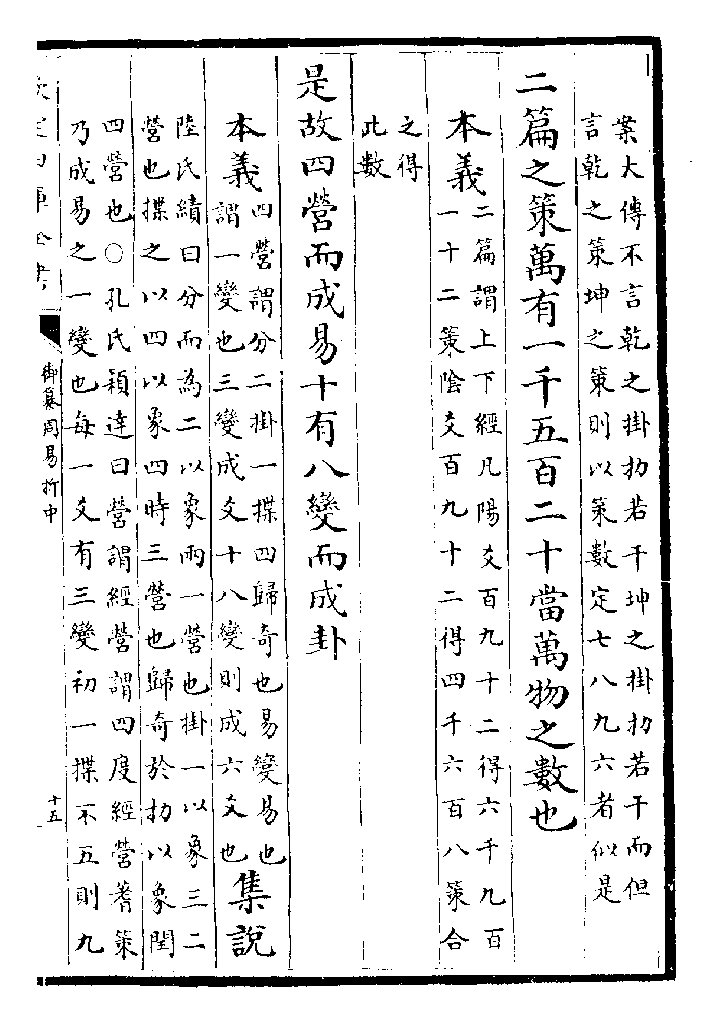 案大傳不言乾之掛扐若干坤之掛扐若干而但
言乾之策坤之策則以策數定七八九六者似是
二篇之策萬有一千五百二十當萬物之數也
本義
二篇謂上下經凡陽爻百九十二得六千九百
一十二策陰爻百九十二得四千六百八策合
之得
此數
是故四營而成易十有八變而成卦
本義
四營謂分二掛一揲四歸奇也易變易也
謂一變也三變成爻十八變則成六爻也
集說
陸氏績曰分而為二以象兩一營也掛一以象三二
營也揲之以四以象四時三營也歸奇於扐以象閏
四營也○孔氏穎達曰營謂經營謂四度經營蓍策
乃成易之一變也每一爻有三變初一揲不五則九
欽定四庫全書
御纂周易折中
十五